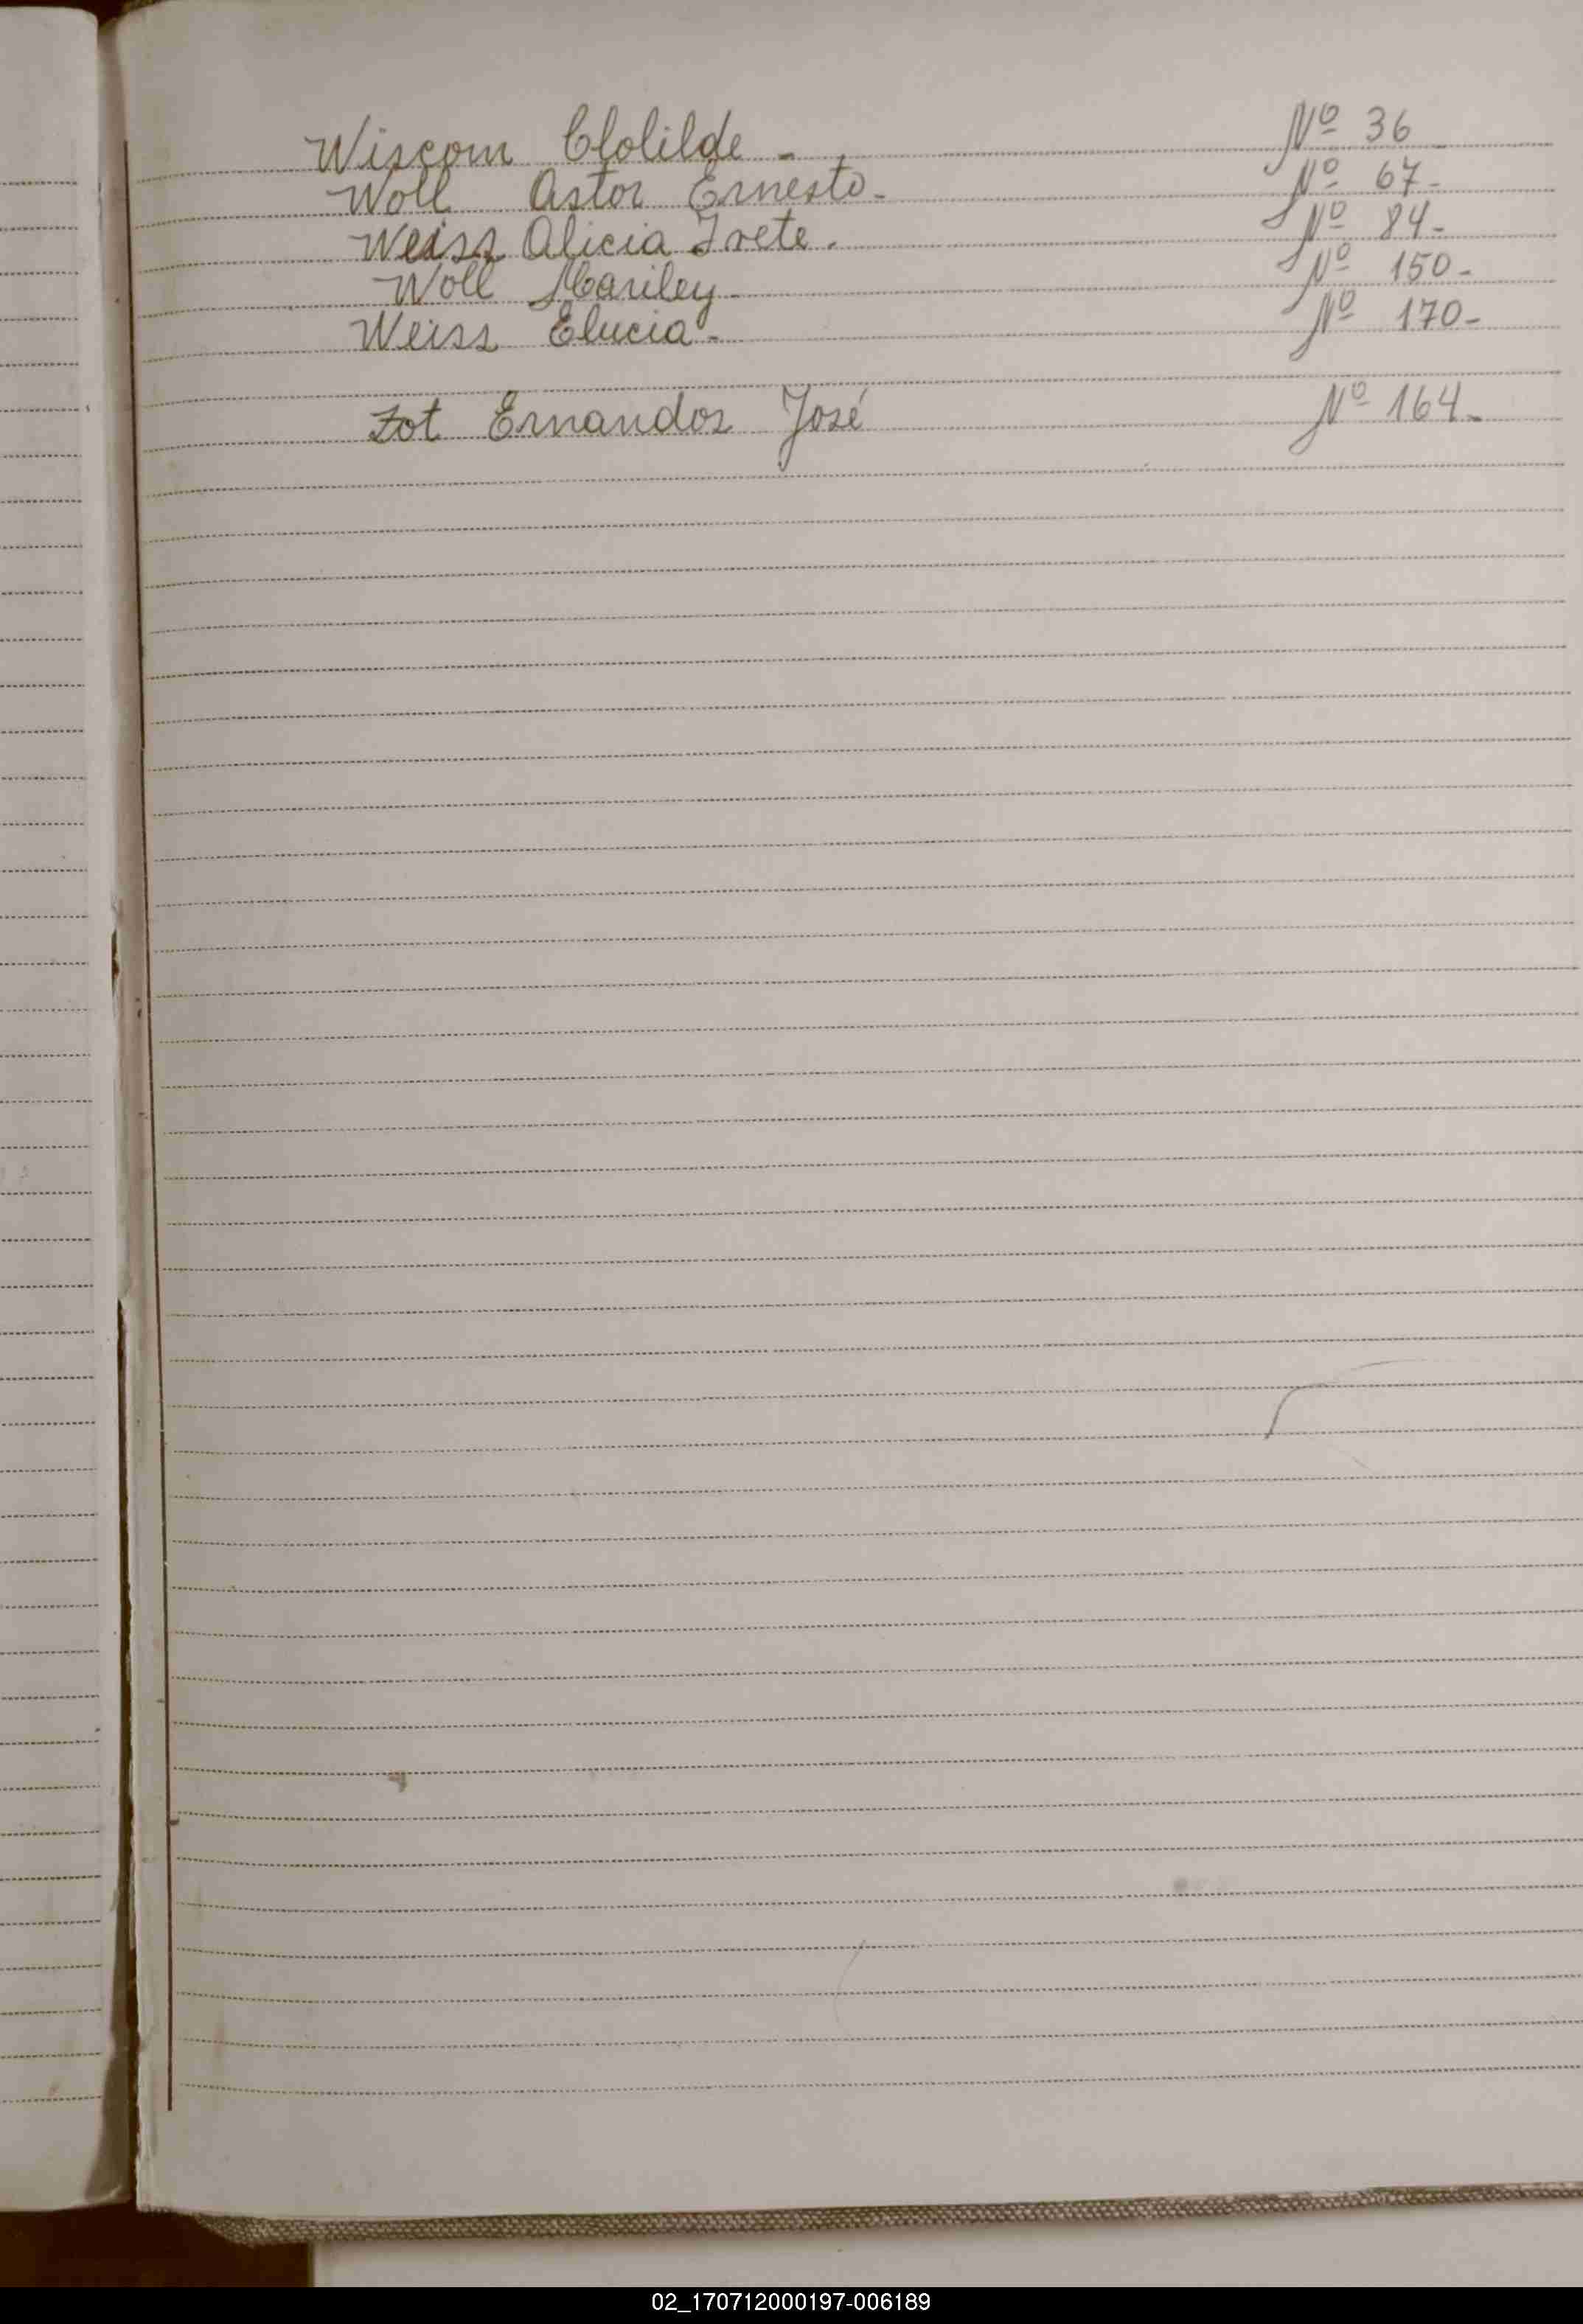 Wiscom Clolilde - Nº 36
Woll Astor Ernesto - Nº 67-
Weiss Alicia Ivete. Nº 84-
Woll Mariley - Nº 150-
Weiss Elucia - Nº 170-
Zot Ernandos José Nº 164-
02_170712000197-006189